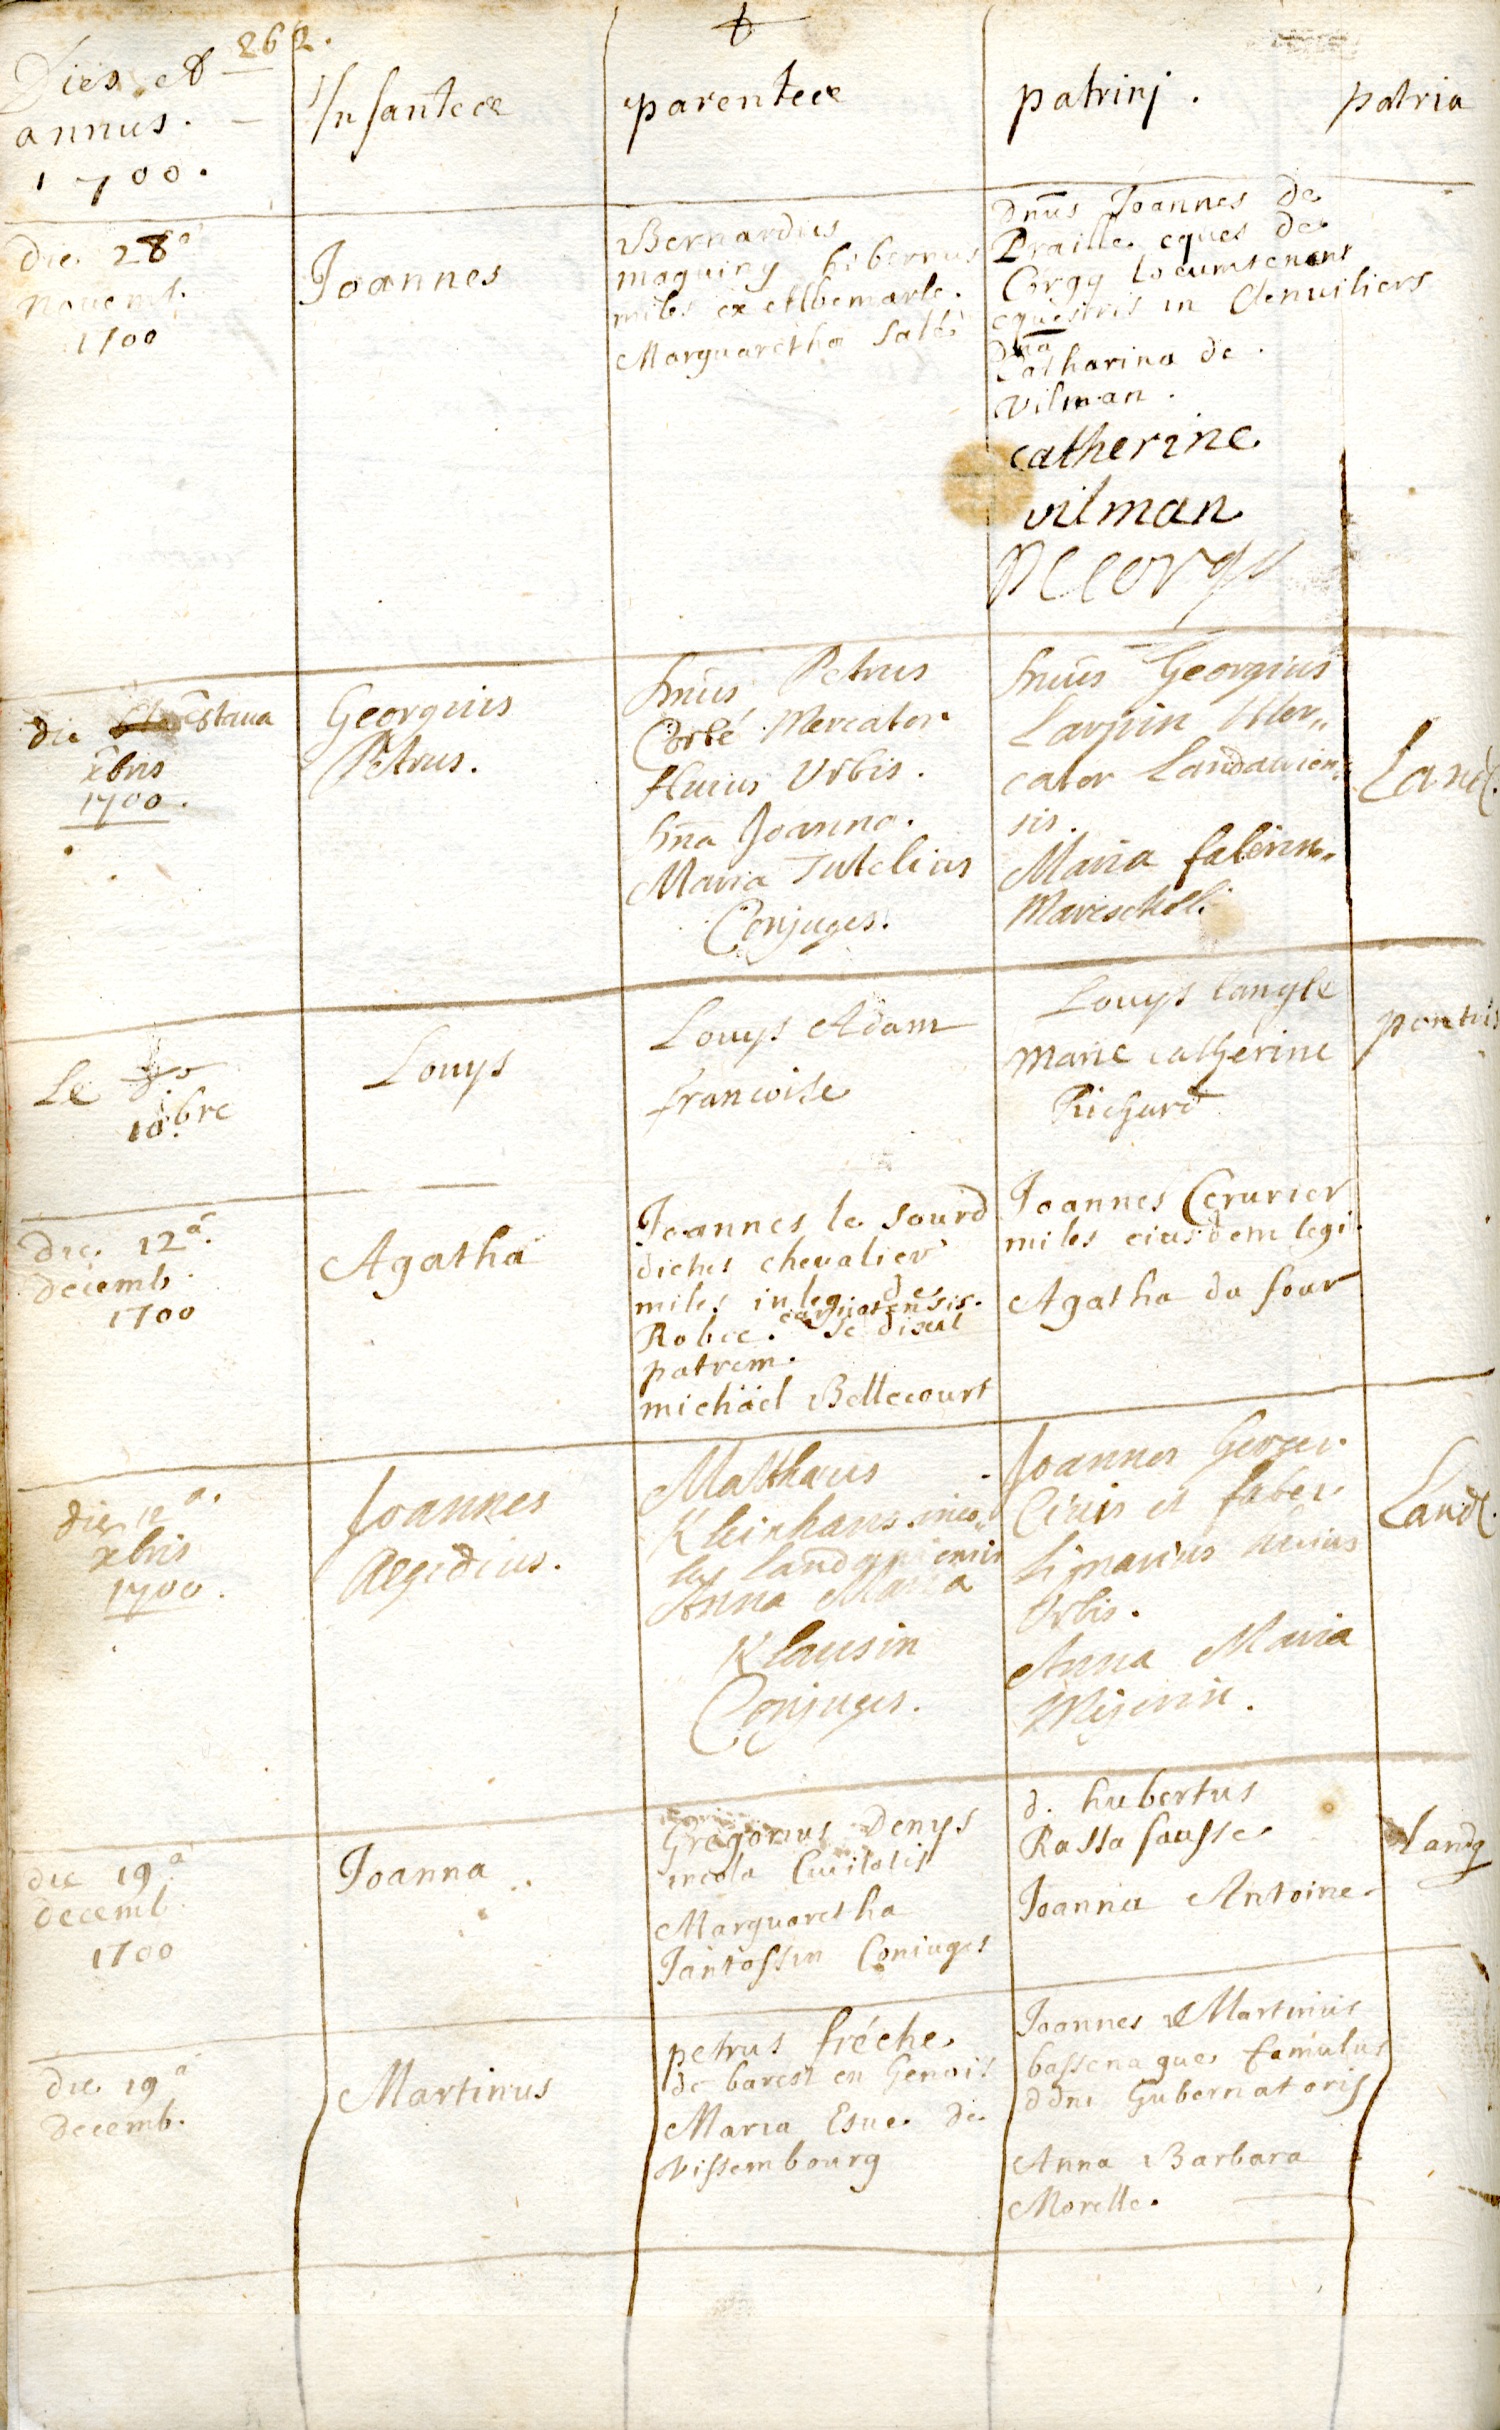 262.
Dies et
annus.
1700.
Infantes
parentes
patrinj.
patria
die 28a
novemb.
1700
Joannes
Bernardus
maguiny hibernus
miles ex Albemarle.
Marguaretha Sallé
Dnūs Joannes de
Praille eques de
Corgy locumtenens
equestris in Clenviliers
Dnā
Catharina de
vilman.
catherine
vilman
Decorgy
die octava
xbris
1700.
Georgius
Petrus.
hnūs Petrus
Corbé Mercator
huius Urbis.
hnā Joanna.
Maria Tutelius
Conjuges.
hnūs Georgius
Larjuin Mer„
cator Landavien„
sis.
Maria
Mareschall.
Land.
Le
10bre
Louys
Louys Adam
francoise
Louys langle
marie catherine
Richard
die 12a.
decemb.
1700
Agatha
Joannes le sourd
dictus chevalier
miles in leg. de
Robec. se dixit
patrem.
michäel Bellecourt
Joannes Cerurier
miles eiusdem legi.
Agatha du four
die 12a.
xbris
1700.
Joannes
Aegidius.
Matthaeus
Kleinhans inco„
la Landaviensis
Anna Maria
Klausin
Conjuges.
Joannes Gerger
Civis et faber
lignarius huius
Urbis.
Anna Maria
Land.
die 19a
decemb
1700
Joanna
Gregorius Denys
incola Civitatis
Marguaretha
Jantossin Coniuges
d. hubertus
Rassa fausse
Joanna Antoine
Land
die 19a
decemb.
Martinus
petrus fréche
de barest en Genois
Maria Esue de
vissembourg
Joannes Martinus
bassenague famulus
ddni Gubernatoris
Anna Barbara
Morelle.